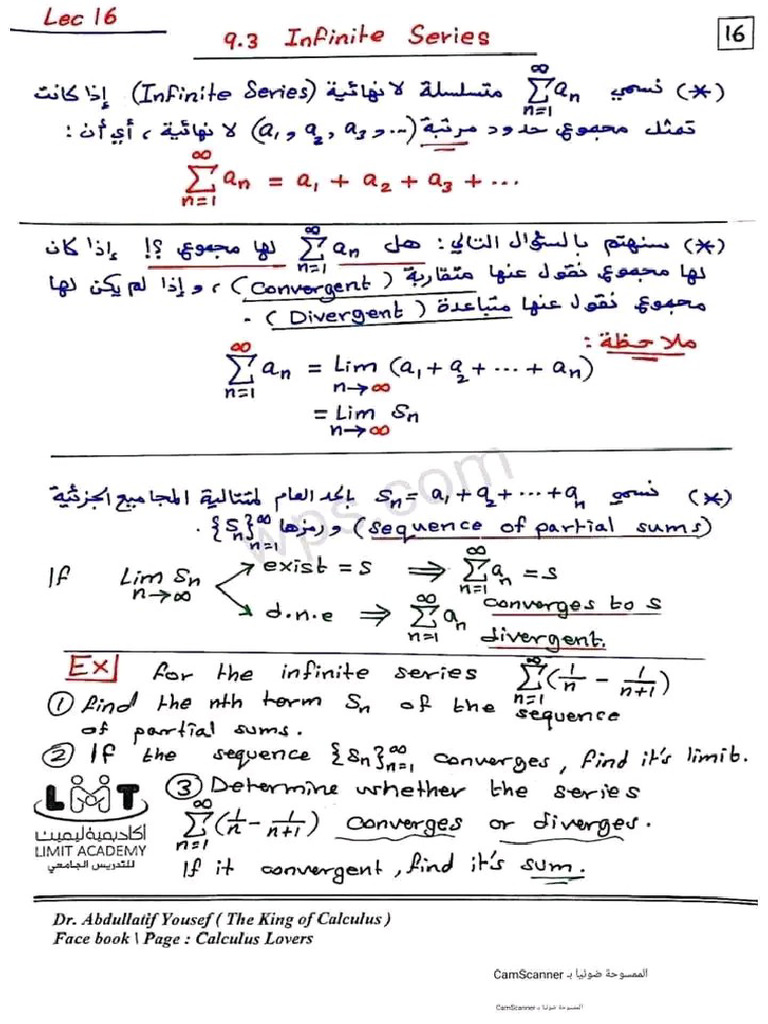 Lec 16
9.3 Infinite Series
16
(*) نسمي ∑_{n=1}^{∞} a_n متسلسلة لا نهائية (Infinite Series) إذا كانت
تمثل مجموع حدود مرتبة (a_1 و a_2 و a_3 و ...) لا نهائية ، أي أن :
∑_{n=1}^{∞} a_n = a_1 + a_2 + a_3 + ...
(*) سنهتم بالسؤال التالي : هل ∑_{n=1}^{∞} a_n لها مجموع ؟! إذا كان
لها مجموع نقول عنها متقاربة (Convergent) ، وإذا لم يكن لها
مجموع نقول عنها متباعدة (Divergent) .
ملاحظة :
∑_{n=1}^{∞} a_n = Lim_{n→∞} (a_1 + a_2 + ... + a_n)
= Lim_{n→∞} S_n
(*) نسمي S_n = a_1 + a_2 + ... + a_n بالحد العام لمتتالية المجاميع الجزئية
(sequence of partial sums) ورمزها {S_n}_{n=1}^{∞} .
wps.com
If Lim_{n→∞} S_n
exist = s ⇒ ∑_{n=1}^{∞} a_n = s
converges to s
d.n.e ⇒ ∑_{n=1}^{∞} a_n
divergent.
Ex for the infinite series ∑_{n=1}^{∞} (1/n - 1/(n+1))
① find the nth term S_n of the sequence
of partial sums.
② If the sequence {S_n}_{n=1}^{∞} converges, find it's limit.
③ Determine whether the series
∑_{n=1}^{∞} (1/n - 1/(n+1)) converges or diverges.
If it convergent, find it's sum.
LIMIT
أكاديمية ليميت
LIMIT ACADEMY
للتدريس الجامعي
Dr. Abdullatif Yousef ( The King of Calculus )
Face book \ Page : Calculus Lovers
الممسوحة ضوئيا بـ CamScanner
الممسوحة ضوئيا بـ CamScanner